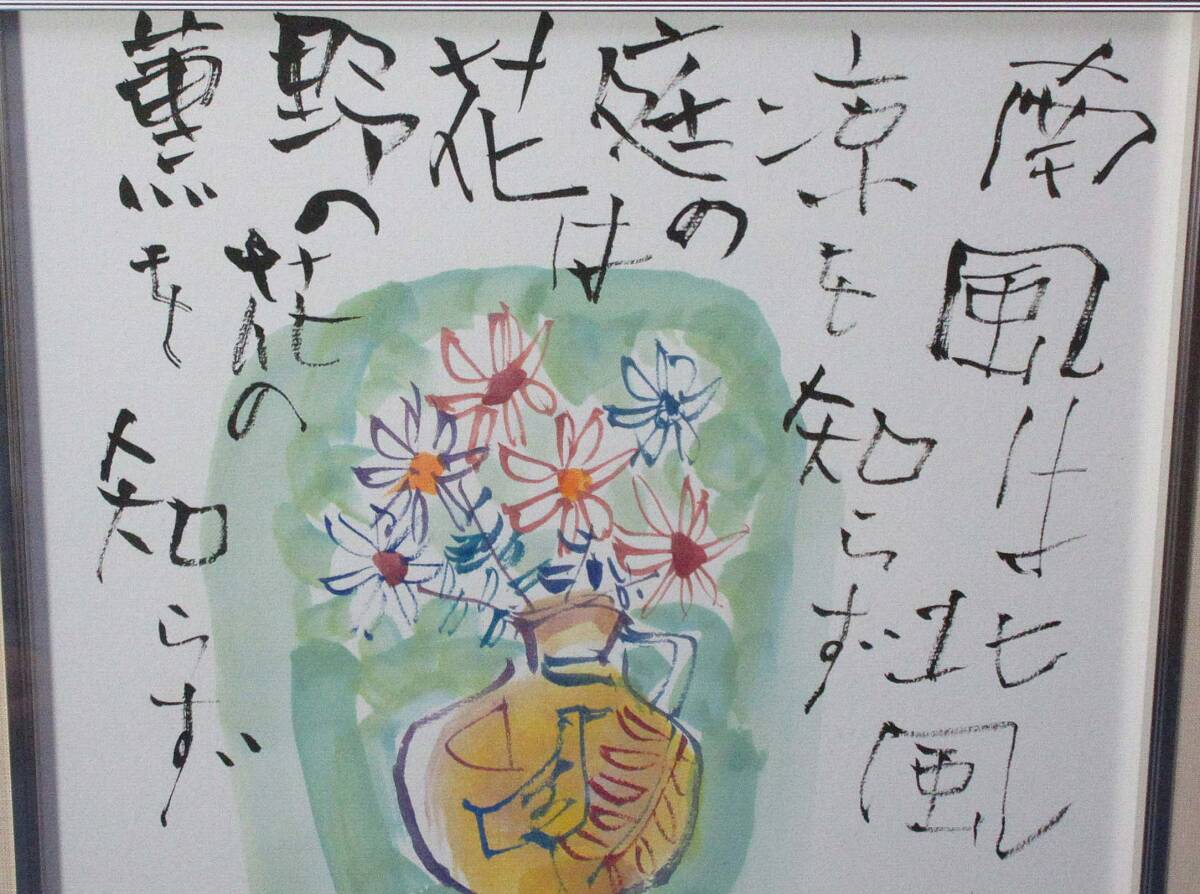 南風は北風
涼を知らず
庭の
花は
野の花の
薫を知らず